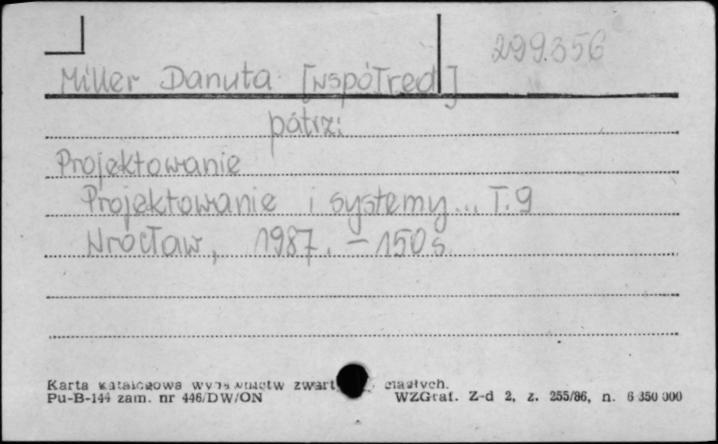 299.356
Miller Danuta [współred]
patrz:
Projektowanie
Projektowanie i systemy... T.9
Wrocław, 1987. – 150 s.
Karta katalogowa wydawnictw zwart ciągłych.
Pu-B-144 zam. nr 446/DW/ON WZGraf. Z-d 2, z. 255/86, n. 6 350 000